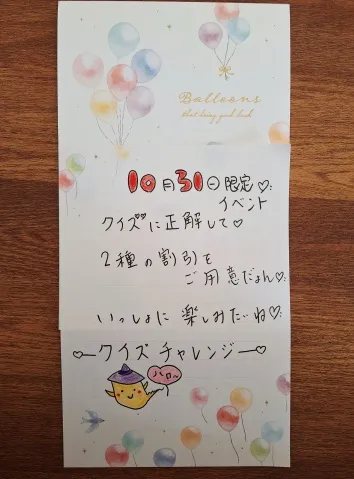 Balloons
that bring good luck
10月31日限定♡
イベント
クイズに正解して♡
2種の割引を
ご用意だよん♡
いっしょに楽しみたいね♡
クイズチャレンジ
ハロー